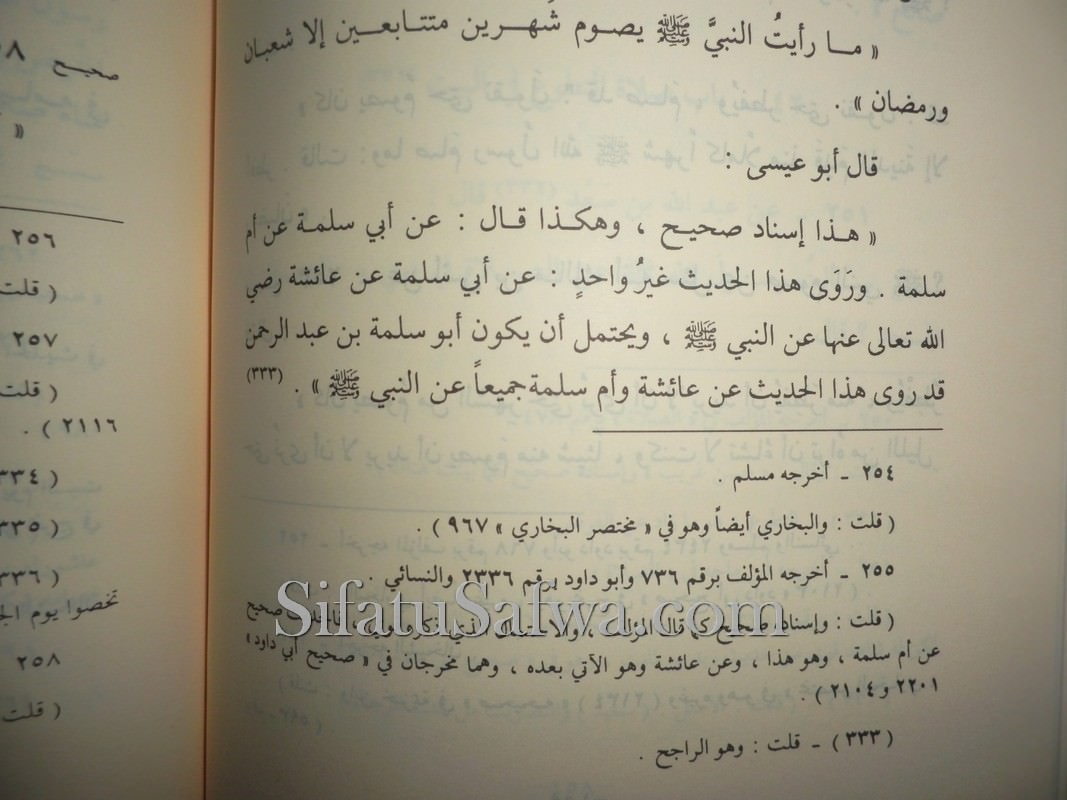 « مـا رأيتُ النبيَّ ﷺ يصـوم شَهـرين متتابعـين إلا شعبـان
ورمضان » .
قال أبو عيسى :
« هـذا إسناد صحيـح ، وهكـذا قـال : عن أبي سلمـة عن أم
سلمة . ورَوَى هذا الحديث غيرُ واحدٍ : عن أبي سلمة عن عائشة رضي
الله تعالى عنها عن النبي ﷺ ، ويحتمل أن يكون أبو سلمة بن عبد الرحمن
قد روى هذا الحديث عن عائشة وأم سلمة جميعاً عن النبي ﷺ » . (٣٣٣)
٢٥٤ - أخرجه مسلم .
( قلت : والبخاري أيضاً وهو في « مختصر البخاري » ٩٦٧ ) .
٢٥٥ - أخرجه المؤلف برقم ٧٣٦ وأبو داود برقم ٢٣٣٦ والنسائي .
( قلت : وإسناده صحيح كما قال المؤلف ، والاحتمال الذي ذكره صحيح
عن أم سلمة ، وهو هذا ، وعن عائشة وهو الآتي بعده ، وهما مخرجان في « صحيح أبي داود »
٢٢٠١ و ٢١٠٤ ) .
( ٣٣٣ ) - قلت : وهو الراجح .
صحيـح
«
٢٥٦
( قلت
٢٥٧
( قلت
٢١١٦ ) .
٣٣٤ )
٣٣٥ )
٣٣٦ )
تخصوا يوم
٢٥٨
( قلت
SifatuSafwa.com